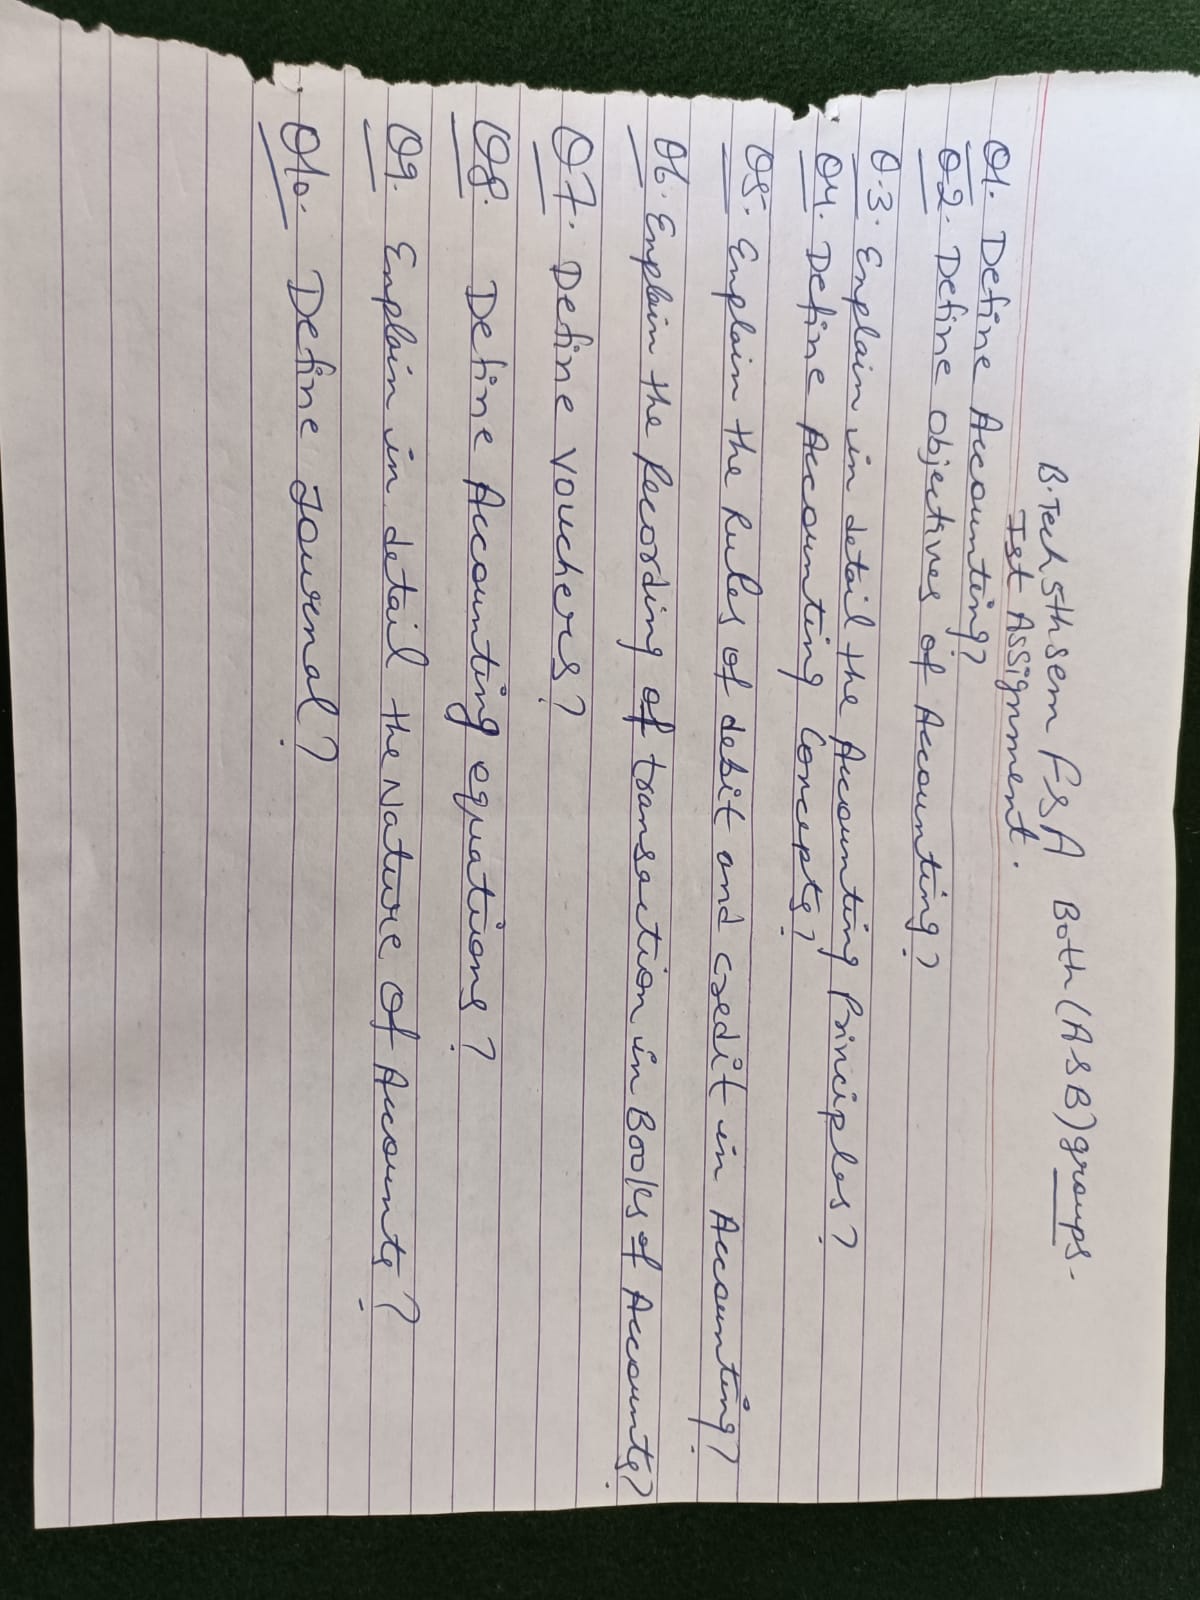 B.Tech 5th sem F&A Both (A&B) groups.
Ist Assignment.
Q1. Define Accounting?
Q2. Define objectives of Accounting?
Q.3. Explain in detail the Accounting Principles?
Q4. Define Accounting Concepts?
Q5. Explain the Rules of debit and credit in Accounting?
Q6. Explain the Recording of transaction in Books of Accounts?
Q7. Define vouchers?
Q8. Define Accounting equations?
Q9. Explain in detail the Nature of Accounts?
Q10. Define Journal?